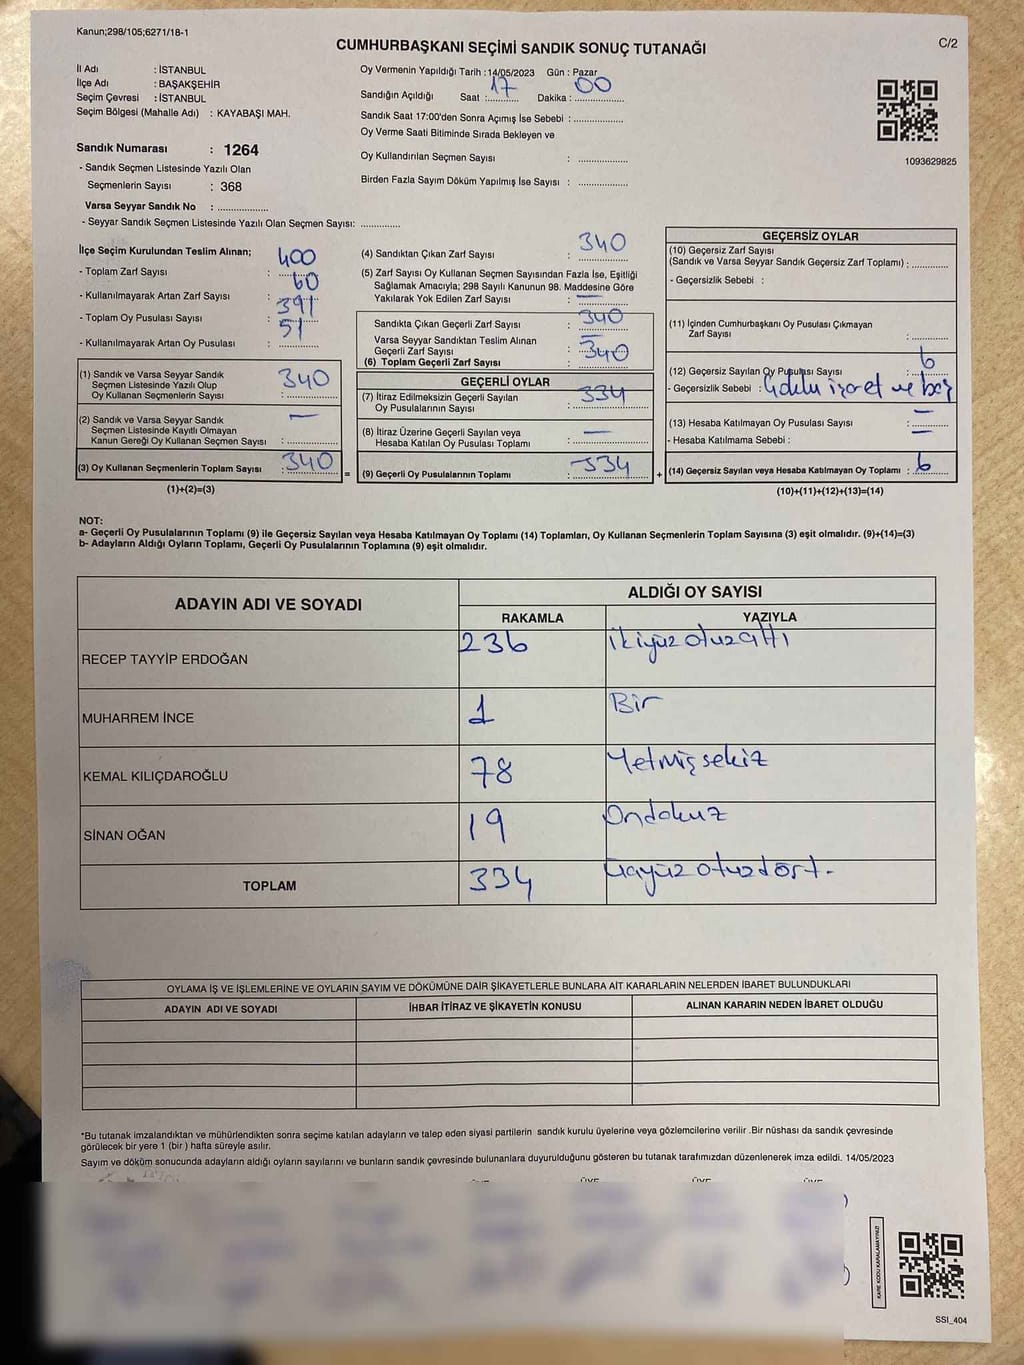 Kanun;298/105;6271/18-1
CUMHURBAŞKANI SEÇİMİ SANDIK SONUÇ TUTANAĞI
C/2
İl Adı : İSTANBUL
İlçe Adı : BAŞAKŞEHİR
Seçim Çevresi : İSTANBUL
Seçim Bölgesi (Mahalle Adı) : KAYABAŞI MAH.
Oy Vermenin Yapıldığı Tarih :14/05/2023 Gün : Pazar
Sandığın Açıldığı Saat : 17 Dakika : 00
Sandık Saat 17:00'den Sonra Açımış İse Sebebi :
Oy Verme Saati Bitiminde Sırada Bekleyen ve
Oy Kullandırılan Seçmen Sayısı :
Birden Fazla Sayım Döküm Yapılmış İse Sayısı :
1093629825
Sandık Numarası : 1264
- Sandık Seçmen Listesinde Yazılı Olan
Seçmenlerin Sayısı : 368
Varsa Seyyar Sandık No :
- Seyyar Sandık Seçmen Listesinde Yazılı Olan Seçmen Sayısı:
İlçe Seçim Kurulundan Teslim Alınan;
- Toplam Zarf Sayısı : 400
- Kullanılmayarak Artan Zarf Sayısı : 60
- Toplam Oy Pusulası Sayısı : 391
- Kullanılmayarak Artan Oy Pusulası : 51
(1) Sandık ve Varsa Seyyar Sandık
Seçmen Listesinde Yazılı Olup
Oy Kullanan Seçmenlerin Sayısı : 340
(2) Sandık ve Varsa Seyyar Sandık
Seçmen Listesinde Kayıtlı Olmayan
Kanun Gereği Oy Kullanan Seçmen Sayısı : —
(3) Oy Kullanan Seçmenlerin Toplam Sayısı : 340 =
(1)+(2)=(3)
(4) Sandıktan Çıkan Zarf Sayısı : 340
(5) Zarf Sayısı Oy Kullanan Seçmen Sayısından Fazla İse, Eşitliği
Sağlamak Amacıyla; 298 Sayılı Kanunun 98. Maddesine Göre
Yakılarak Yok Edilen Zarf Sayısı : —
Sandıkta Çıkan Geçerli Zarf Sayısı : 340
Varsa Seyyar Sandıktan Teslim Alınan
Geçerli Zarf Sayısı : —
(6) Toplam Geçerli Zarf Sayısı : 340
GEÇERLİ OYLAR
(7) İtiraz Edilmeksizin Geçerli Sayılan
Oy Pusulalarının Sayısı : 334
(8) İtiraz Üzerine Geçerli Sayılan veya
Hesaba Katılan Oy Pusulası Toplamı : —
(9) Geçerli Oy Pusulalarının Toplamı : 334 +
GEÇERSİZ OYLAR
(10) Geçersiz Zarf Sayısı
(Sandık ve Varsa Seyyar Sandık Geçersiz Zarf Toplamı) :
- Geçersizlik Sebebi :
(11) İçinden Cumhurbaşkanı Oy Pusulası Çıkmayan
Zarf Sayısı :
(12) Geçersiz Sayılan Oy Pusulası Sayısı : 6
- Geçersizlik Sebebi : işaret ve boş
(13) Hesaba Katılmayan Oy Pusulası Sayısı : —
- Hesaba Katılmama Sebebi : —
(14) Geçersiz Sayılan veya Hesaba Katılmayan Oy Toplamı : 6
(10)+(11)+(12)+(13)=(14)
NOT:
a- Geçerli Oy Pusulalarının Toplamı (9) ile Geçersiz Sayılan veya Hesaba Katılmayan Oy Toplamı (14) Toplamları, Oy Kullanan Seçmenlerin Toplam Sayısına (3) eşit olmalıdır. (9)+(14)=(3)
b- Adayların Aldığı Oyların Toplamı, Geçerli Oy Pusulalarının Toplamına (9) eşit olmalıdır.
ADAYIN ADI VE SOYADI
ALDIĞI OY SAYISI
RAKAMLA YAZIYLA
RECEP TAYYİP ERDOĞAN 236 ikiyüzotuzaltı
MUHARREM İNCE 1 Bir
KEMAL KILIÇDAROĞLU 78 Yetmişsekiz
SİNAN OĞAN 19 Ondokuz
TOPLAM 334 üçyüzotuzdört.
OYLAMA İŞ VE İŞLEMLERİNE VE OYLARIN SAYIM VE DÖKÜMÜNE DAİR ŞİKAYETLERLE BUNLARA AİT KARARLARIN NELERDEN İBARET BULUNDUKLARI
ADAYIN ADI VE SOYADI İHBAR İTİRAZ VE ŞİKAYETİN KONUSU ALINAN KARARIN NEDEN İBARET OLDUĞU
*Bu tutanak imzalandıktan ve mühürlendikten sonra seçime katılan adayların ve talep eden siyasi partilerin sandık kurulu üyelerine veya gözlemcilerine verilir .Bir nüshası da sandık çevresinde
görülecek bir yere 1 (bir ) hafta süreyle asılır.
Sayım ve döküm sonucunda adayların aldığı oyların sayılarını ve bunların sandık çevresinde bulunanlara duyurulduğunu gösteren bu tutanak tarafımızdan düzenlenerek imza edildi. 14/05/2023
KARE KODU KARALAMAYINIZ!
SSI_404